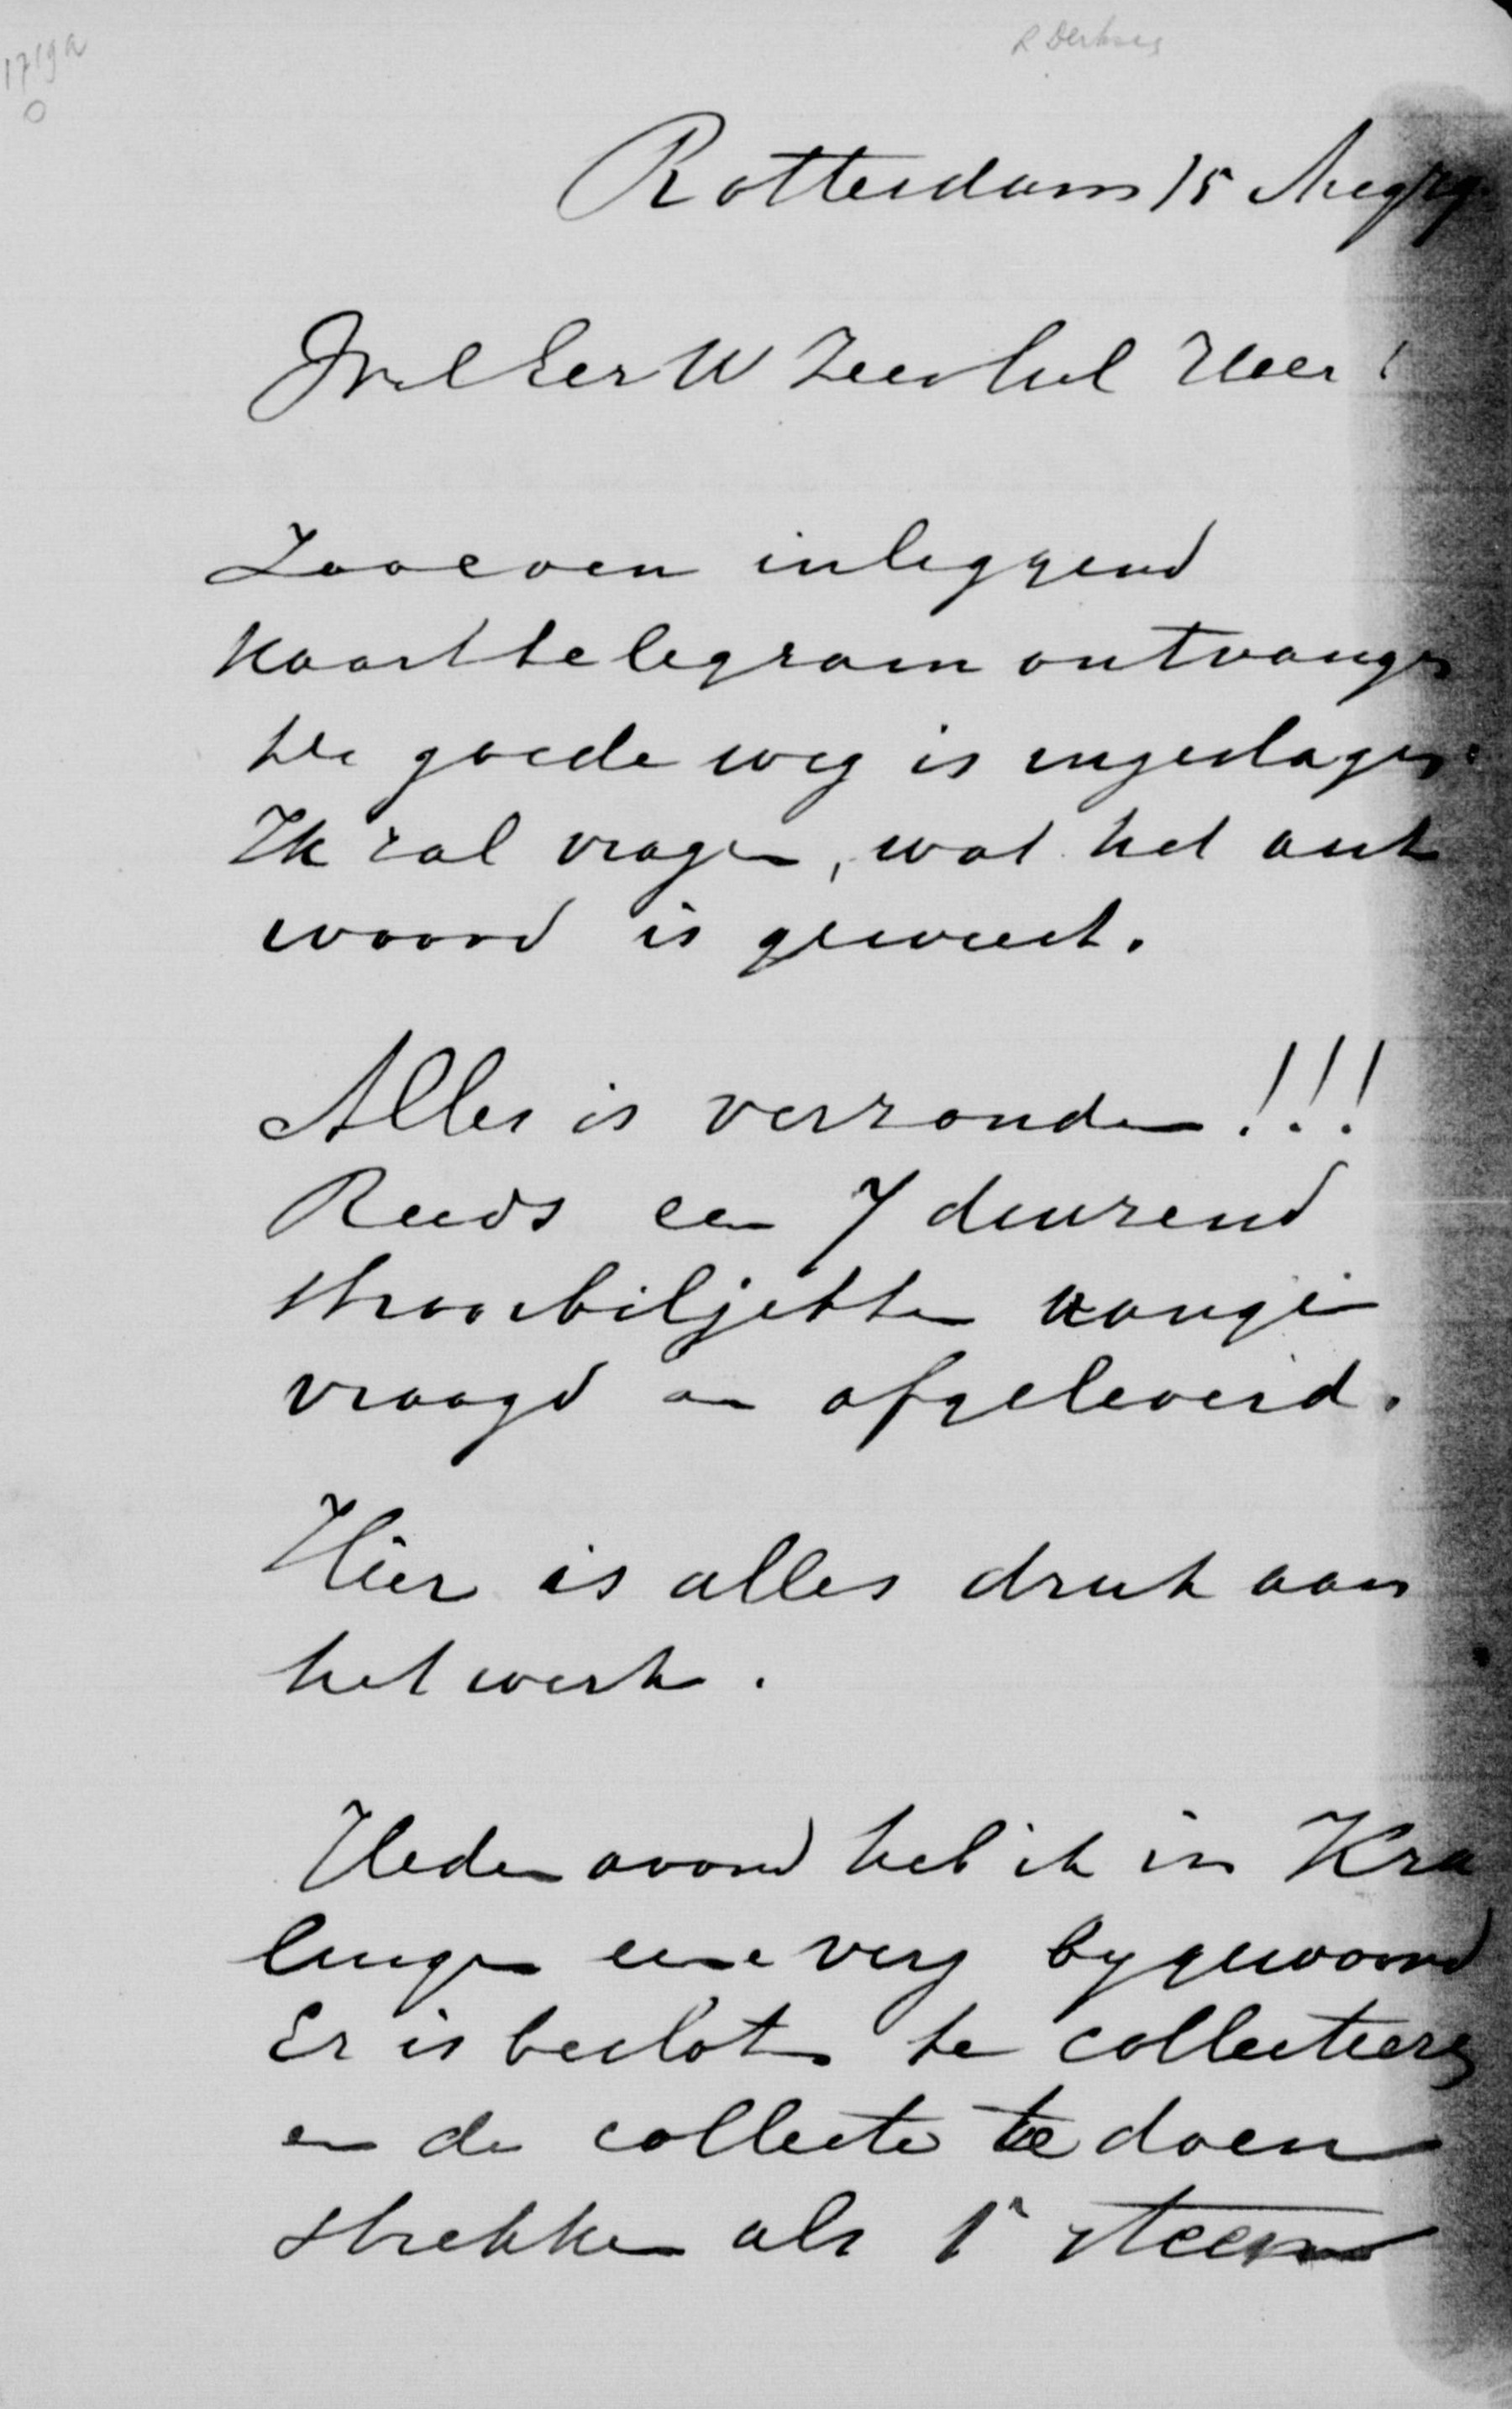 1719a
R Derksen
Rotterdam 15 Aug
WelEerW Zeer Gel Heer!
Zooeven inleggend
kaarttelegram ontvangen
De goede weg is ingeslagen.
Ik zal vragen, wat het ant
woord is geweest.
Alles is verzonden!!!
Reeds een 7 duizend
strooibiljetten aange
vraagd en afgeleverd.
Hier is alles druk aan
het werk.
Heden avond heb ik in Kra
lingen eene verg bygewoond
Er is besloten te collecteeren
en de collecte te doen
strekken als 1e steen